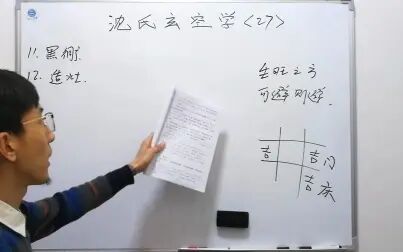 沈氏玄空学<27>
11. 黑
12. 造灶.
生旺之方
可避则避.
吉 吉门
吉床